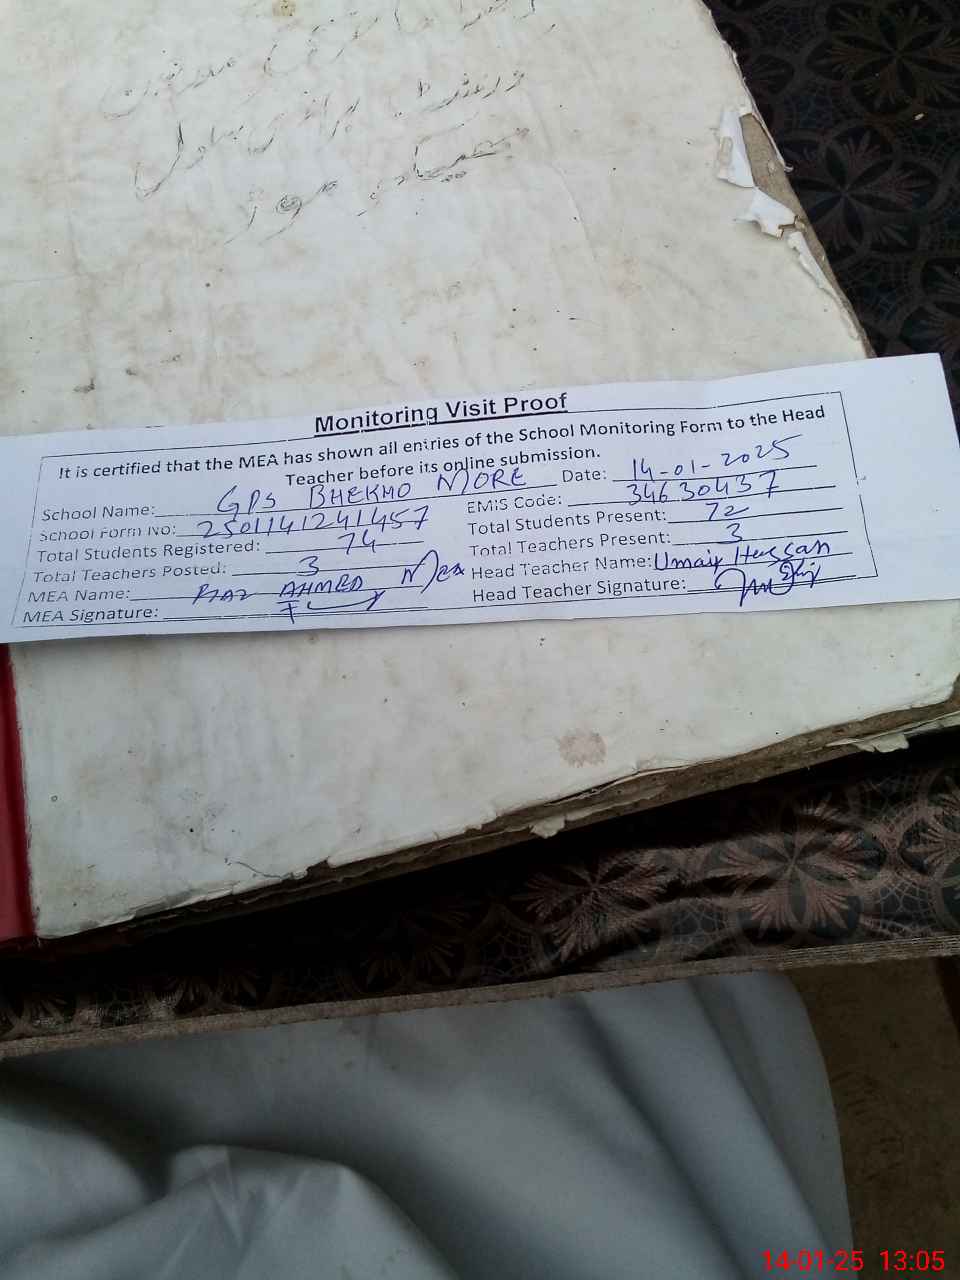 ورنمنٹ پرائمری سکول
بھیکھو موڑ
Monitoring Visit Proof
It is certified that the MEA has shown all entries of the School Monitoring Form to the Head
Teacher before its online submission.
School Name: GPS BHEKHO MORE Date: 14-01-2025
School Form No: 2501141241457 EMIS Code: 34630437
Total Students Registered: 74 Total Students Present: 72
Total Teachers Posted: 3 Total Teachers Present: 3
MEA Name: RIAZ AHMED MEA Head Teacher Name: Umair Hassan
MEA Signature: Head Teacher Signature:
14-01-25 13:05